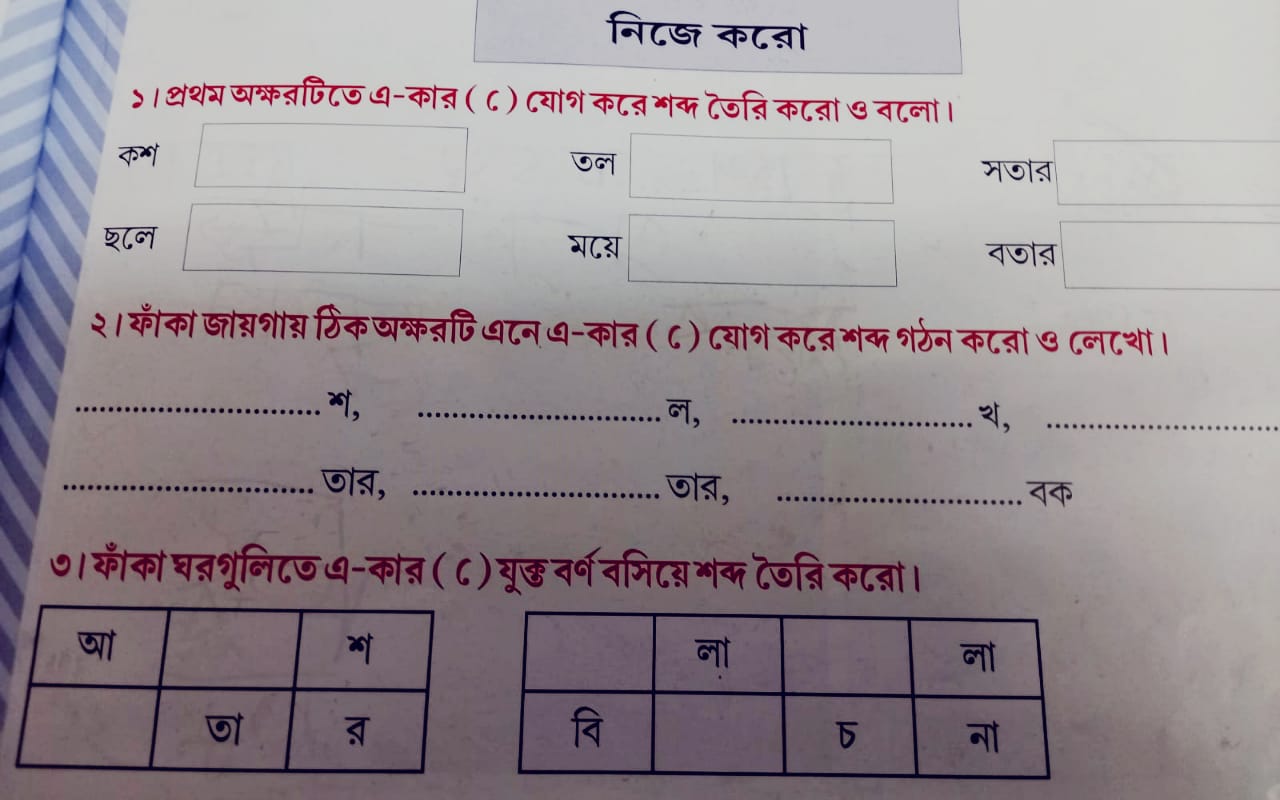 নিজে করো
১। প্রথম অক্ষরটিতে এ-কার ( ে ) যোগ করে শব্দ তৈরি করো ও বলো।
কশ তল সতার
ছলে ময়ে বতার
২। ফাঁকা জায়গায় ঠিক অক্ষরটি এনে এ-কার ( ে ) যোগ করে শব্দ গঠন করো ও লেখো।
............................... শ, ............................... ল, ............................... খ, ..............................
............................... তার, ............................... তার, ............................... বক
৩। ফাঁকা ঘরগুলিতে এ-কার ( ে ) যুক্ত বর্ণ বসিয়ে শব্দ তৈরি করো।
আ শ লা লা
তা র বি চ না